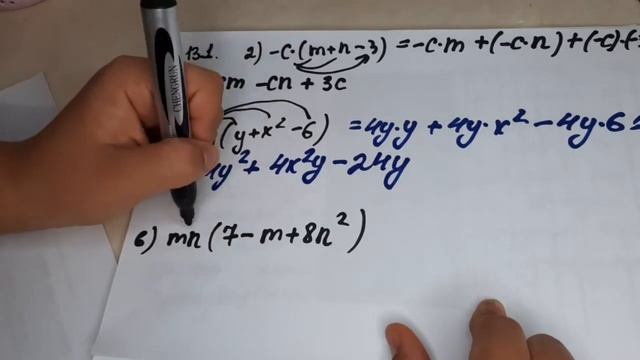 13.1. 2) -c·(m+n-3) = -c·m + (-c·n) + (-c)·(-3
m - cn + 3c
(y+x²-6) = 4y·y + 4y·x² - 4y·6 =
4y² + 4x²y - 24y
6) mn(7-m+8n²)
CHENGRUN